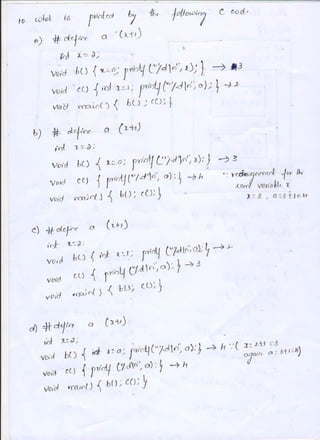 10. what is printed by the following C code.
a) # define a (x+1)
int x=2;
void b() { x=a; printf("%d\n", x); } → 3
void c() { int x=1; printf("%d\n", a); } → 2
void main() { b(); c(); }
b) # define a (x+1)
int x=2;
void b() { x=a; printf("%d\n", x); } → 3
void c() { printf("%d\n", a); } → 4
void main() { b(); c(); }
for the
variable x
x=3, a=3+1=4
c) # define a (x+1)
int x=2;
void b() { int x=1; printf("%d\n", a); } → 2
void c() { printf("%d\n", a); } → 3
void main() { b(); c(); }
d) # define a (x+1)
int x=2;
void b() { x=a; printf("%d\n", a); } → 4 ∵ ( x=2+1=3
again a=3+1=4 )
void c() { printf("%d\n", a); } → 4
void main() { b(); c(); }